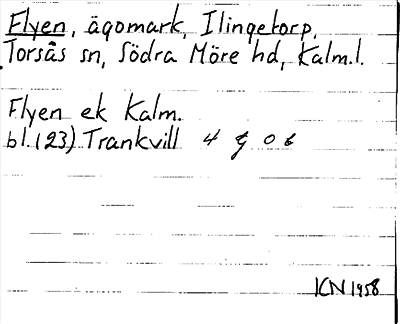 Flyen, ägomark, Ilingetorp,
Torsås sn, Södra Möre hd, Kalm.l.
Flyen ek Kalm.
bl. (23) Trankvill 4 g o
ICN 1958